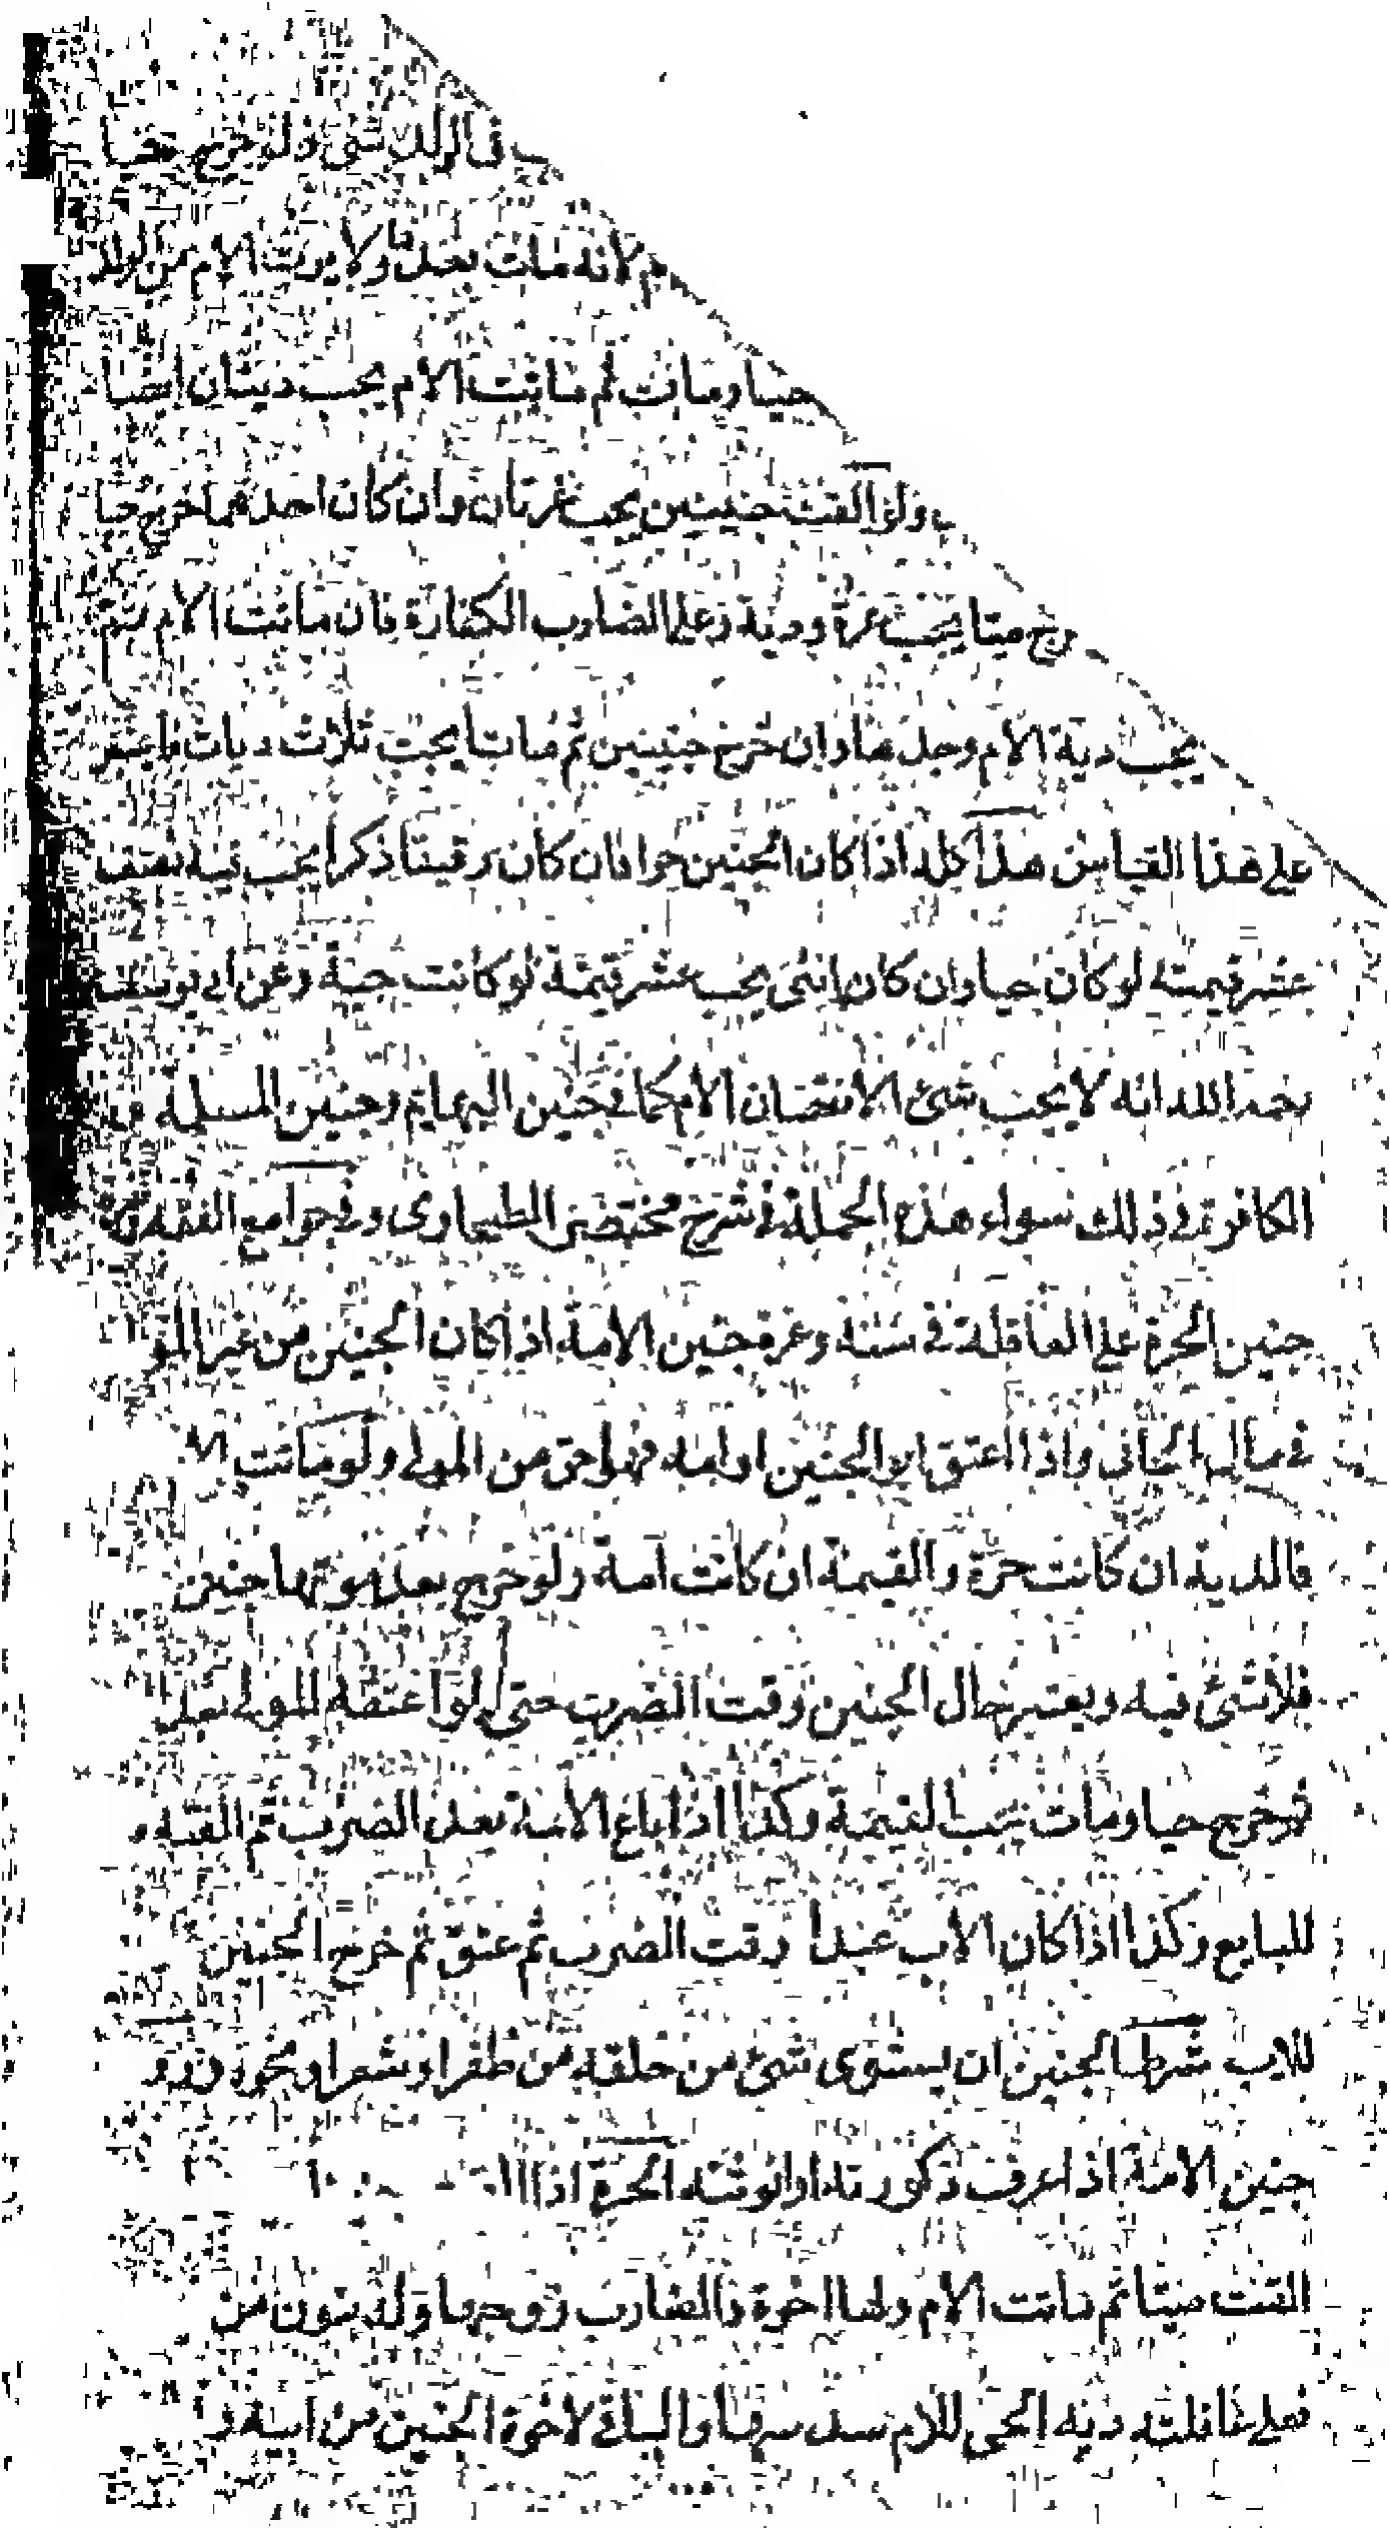 في الولد شئ ولو خرج حيا
لانه مات بعدها ولا يورث الام من الولد
حيا ومات ثم ماتت الام يجب ديتان ايضا
ولو القت جنينين يجب غرتان وان كان احدهما خرج حيا
ميتا يجب غرة ودية وعلى الضارب الكفارة فان ماتت الام ثم
يجب دية الام وحدها وان خرج جنينين ثم ماتا يجب ثلاث ديات فاعتبر
على هذا القياس هذا كله اذا كان الجنين حرا فان كان رقيقا ذكرا يجب فيه نصف
عشر قيمته لو كان حيا وان كان انثى يجب عشر قيمة لو كانت حية وعن ابي يوسف
رحمه الله انه لا يجب شئ الا نقصان الام كما في جنين البهايم وجنين المسلمة و
الكافرة في ذلك سواء هذه الجملة في شرح مختصر الطحاوي وفي جوامع الفقه
جنين الحرة على العاقلة في سنة وغرة جنين الامة اذا كان الجنين من غير المو
في مال الجاني واذا اعتق ابو الجنين او امه فهو احق من المولى ولو ماتت الا
فالدية ان كانت حرة والقيمة ان كانت امة ولو خرج بعد موتها جنين
فلا شئ فيه ويعتبر حال الجنين وقت الضرب حتى لو اعتقه المولى بعد
خرج حيا ومات يجب القيمة وكذا اذا باع الامة بعد الضرب ثم القته و
للبايع وكذا اذا كان الاب عبدا وقت الضرب ثم عتق ثم خرج الجنين
للاب شرط الجنين ان يستوى شئ من خلقه من ظفر او شعر او نحوه
جنين الامة اذا عرفت ذكورته او انوثته الحرة اذا
القت ميتا ثم ماتت الام ولها اخوة فالضارب زوجها وله بنون من
فعلى عاقلته دية الجنين للام سدسها والباقي لاخوة الجنين من ابيه و